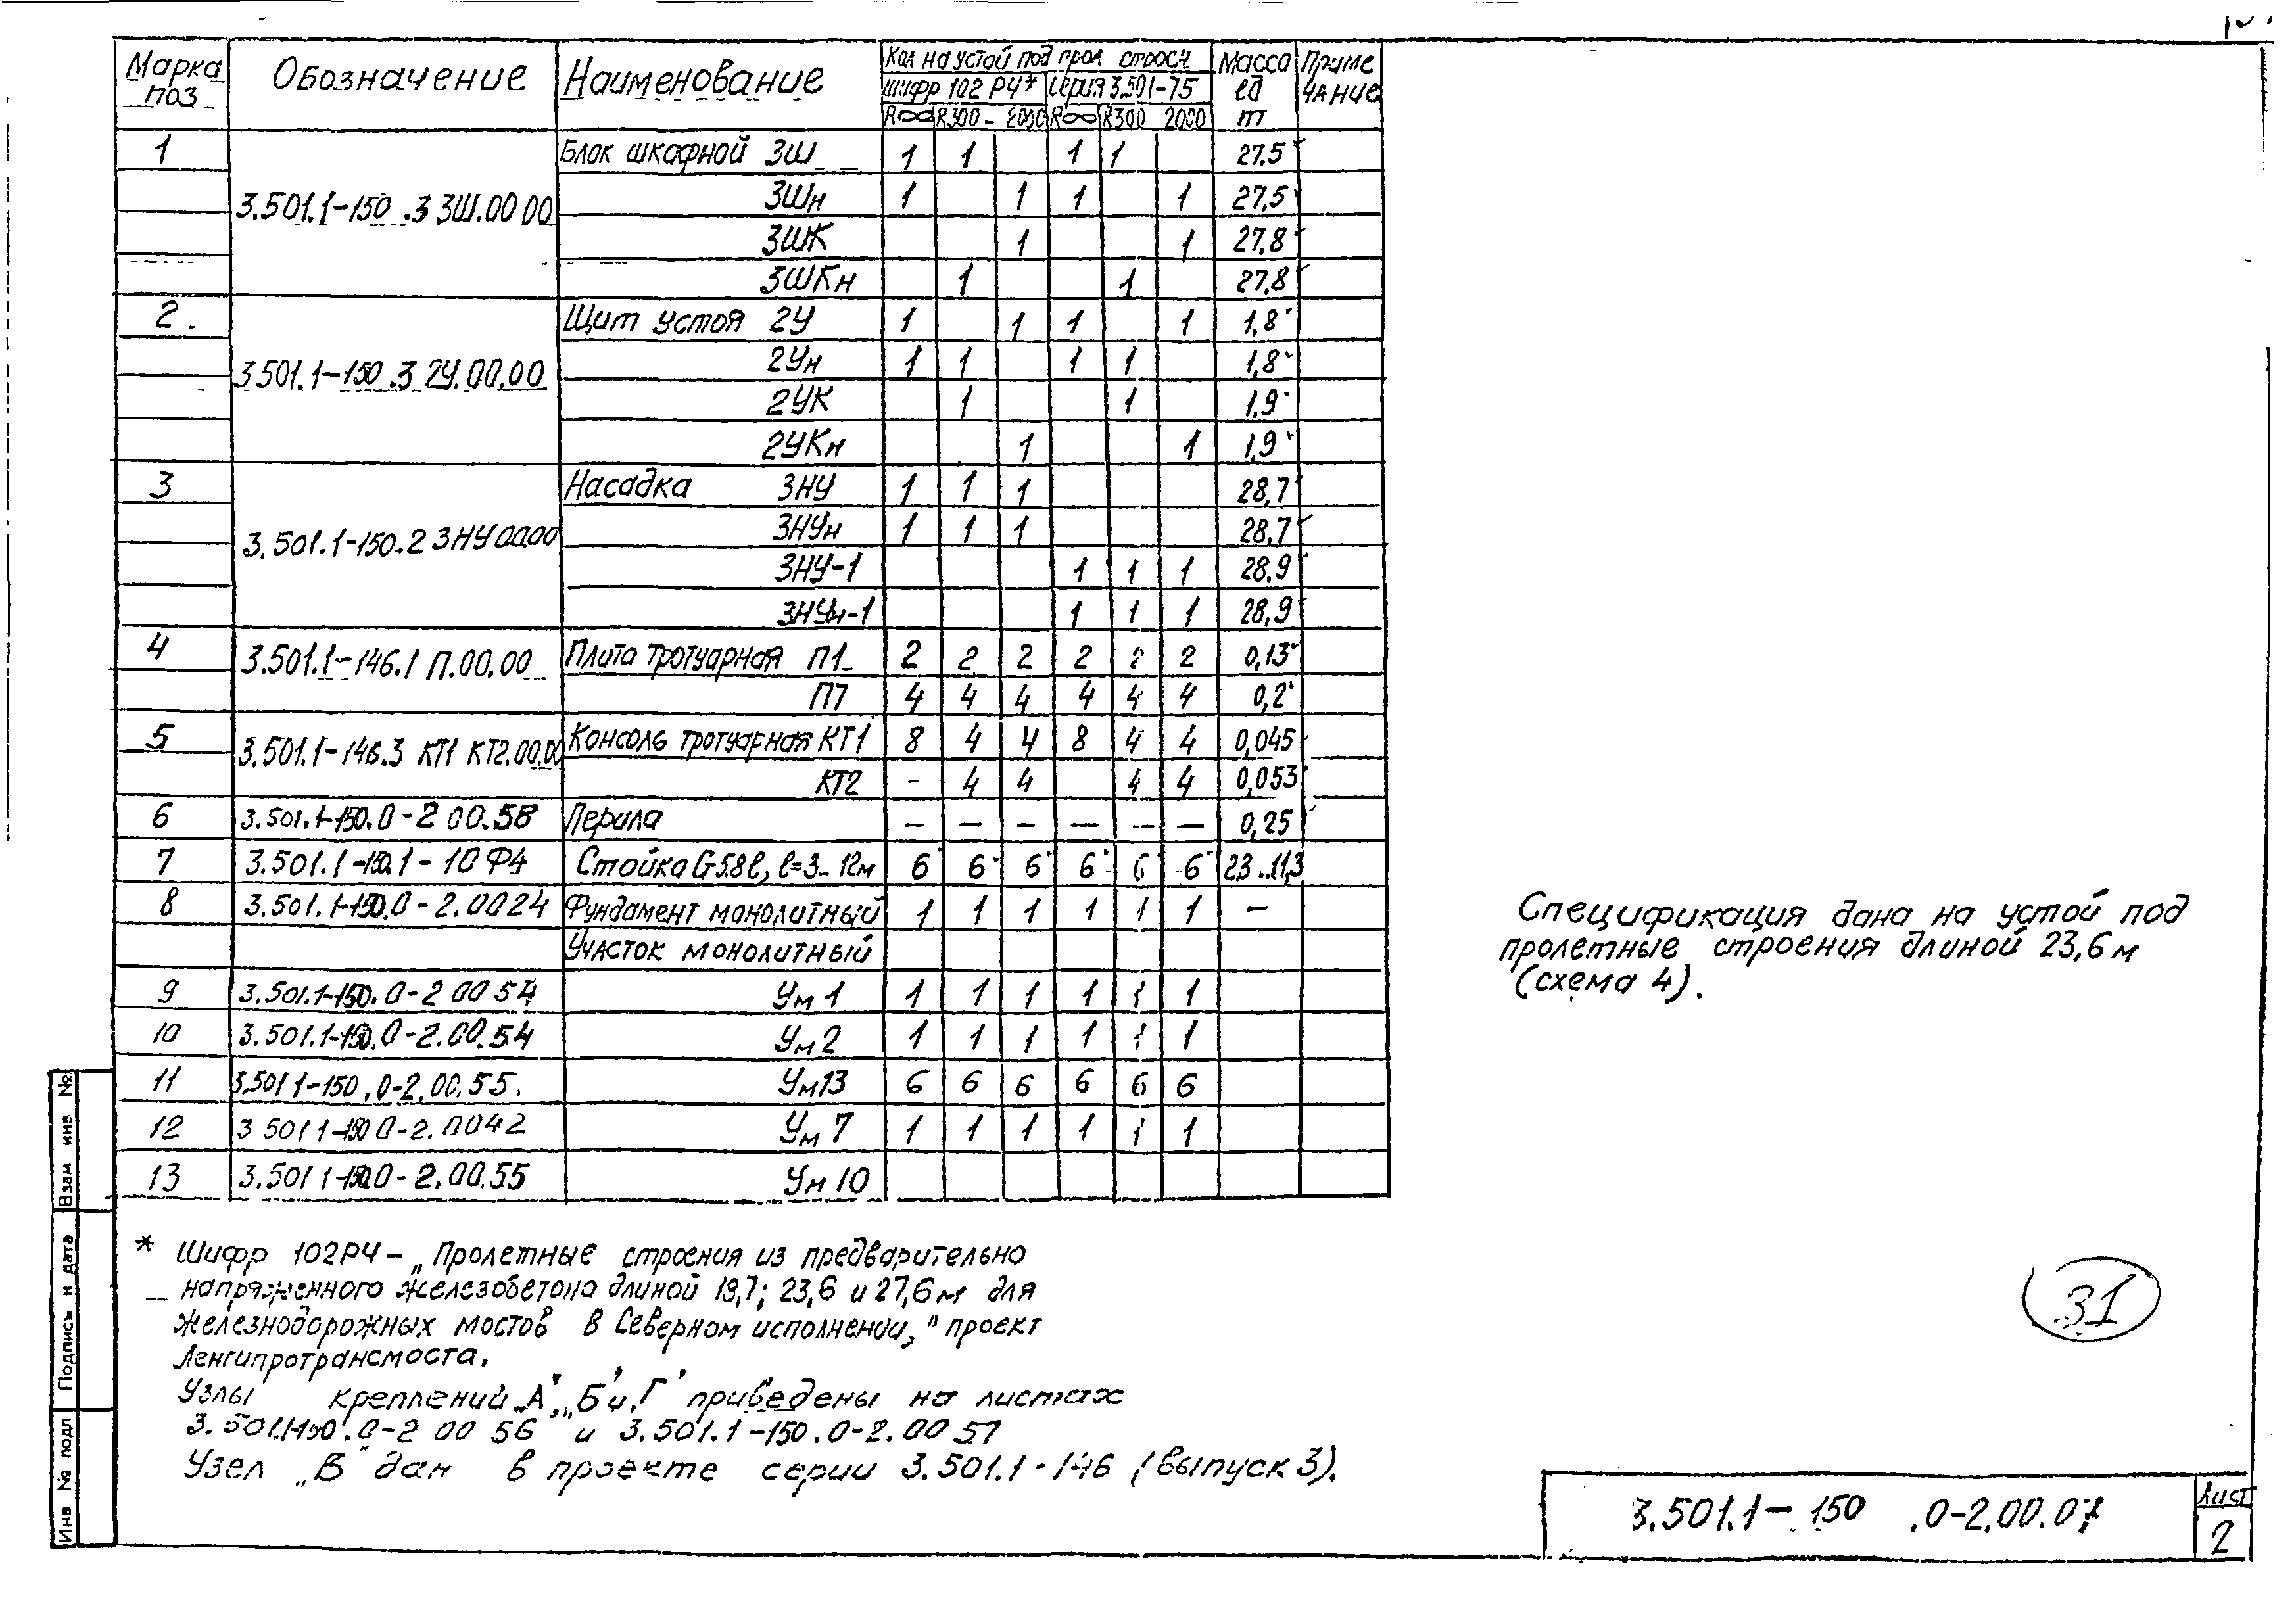 Марка поз Обозначение Наименование Кол на устой под прол строен Масса ед т Приме чание
шифр 102 РЧ* Серия 3.501-75
R∞ R300 - 2000 R∞ R300 2000
1 3.501.1-150.3 3Ш.00 00 Блок шкафной 3Ш 1 1 1 1 27.5
3Шн 1 1 1 1 27,5
3ШК 1 1 27,8
3ШКн 1 1 27,8
2. 3.501.1-150.3 2У.00.00 Щит устоя 2У 1 1 1 1 1,8
2Ун 1 1 1 1 1,8
2УК 1 1 1,9
2УКн 1 1 1,9
3 3.501.1-150.2 3НУ 00.00 Насадка 3НУ 1 1 1 28,7
3НУн 1 1 1 28,7
3НУ-1 1 1 1 28,9
3НУн-1 1 1 1 28,9
4 3.501.1-146.1 П.00.00 Плита тротуарная П1 2 2 2 2 2 2 0,13
П7 4 4 4 4 4 4 0,2
5 3.501.1-146.3 КТ1 КТ2.00.00 Консоль тротуарная КТ1 8 4 4 8 4 4 0,045
КТ2 - 4 4 4 4 0,053
6 3.501.1-150.0-2 00.58 Перила — — — — — — 0,25
7 3.501.1-150.1-10 Ф4 Стойка G58l, l=3-12м 6 6 6 6 6 6 2,3..11,3
8 3.501.1-150.0-2.0024 Фундамент монолитный 1 1 1 1 1 1 —
Участок монолитный
9 3.501.1-150.0-2 00 54 Ум 1 1 1 1 1 1 1
10 3.501.1-150.0-2.00.54 Ум 2 1 1 1 1 1 1
11 3.501 1-150.0-2.00.55. Ум13 6 6 6 6 6 6
12 3 501 1-150 0-2.0042 Ум 7 1 1 1 1 1 1
13 3.501 1-150.0-2.00.55 Ум 10
Спецификация дана на устой под
пролетные строения длиной 23,6 м
(схема 4).
* Шифр 102РЧ - „Пролетные строения из предварительно
напряженного железобетона длиной 19,7; 23,6 и 27,6м для
железнодорожных мостов в Северном исполнении," проект
Ленгипротрансмоста.
Узлы креплений „А", „Б" и „Г" приведены на листах
3.501.1-150.0-2 00 56 и 3.501.1-150.0-2.00 57
Узел „В" дан в проекте серии 3.501.1-146 (выпуск 3).
31
3.501.1-150 .0-2.00.07
Лист
2
Взам инв №
Подпись и дата
Инв № подл